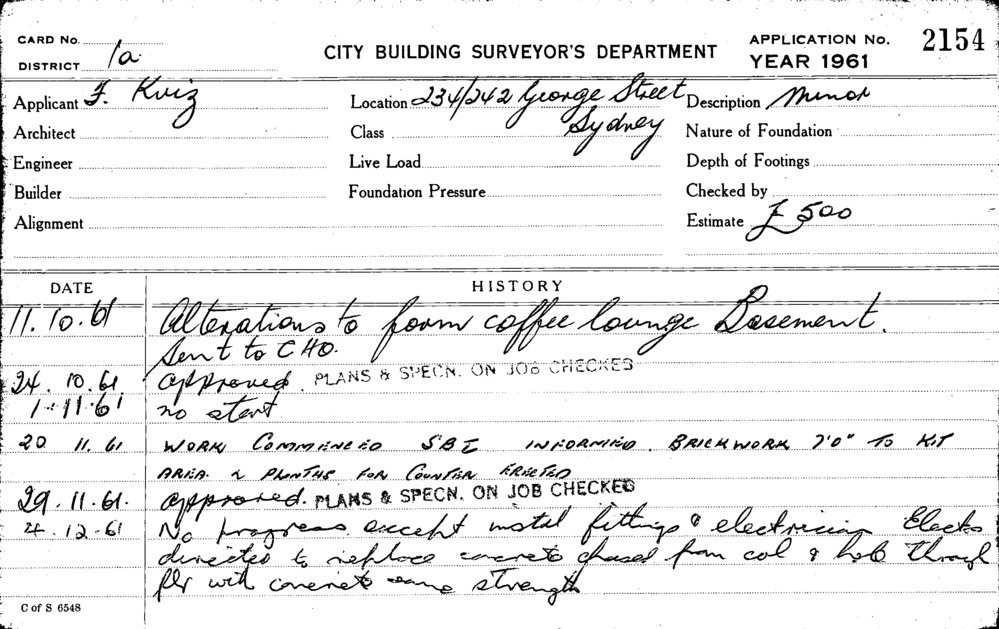 CARD No.
DISTRICT 1a
CITY BUILDING SURVEYOR'S DEPARTMENT
APPLICATION No. 2154
YEAR 1961
Applicant F. Kuiz
Location 234/242 George Street
Sydney
Description Minor
Architect
Class
Nature of Foundation
Engineer
Live Load
Depth of Footings
Builder
Foundation Pressure
Checked by
Alignment
Estimate £ 500
DATE HISTORY
11.10.61 Alterations to form coffee lounge Basement.
Sent to CHO.
24.10.61 approved. PLANS & SPECN. ON JOB CHECKED
1.11.61 no start
20 11.61 WORK COMMENCED SBI INFORMED. BRICKWORK 7'0" TO KIT
AREA & PLINTHS FOR COUNTER ERECTED
29.11.61. approved. PLANS & SPECN. ON JOB CHECKED
4.12.61 No progress except instal fittings & electricians
directed to replace concrete chased from col & hole through
flr with concrete same strength
C of S 6548